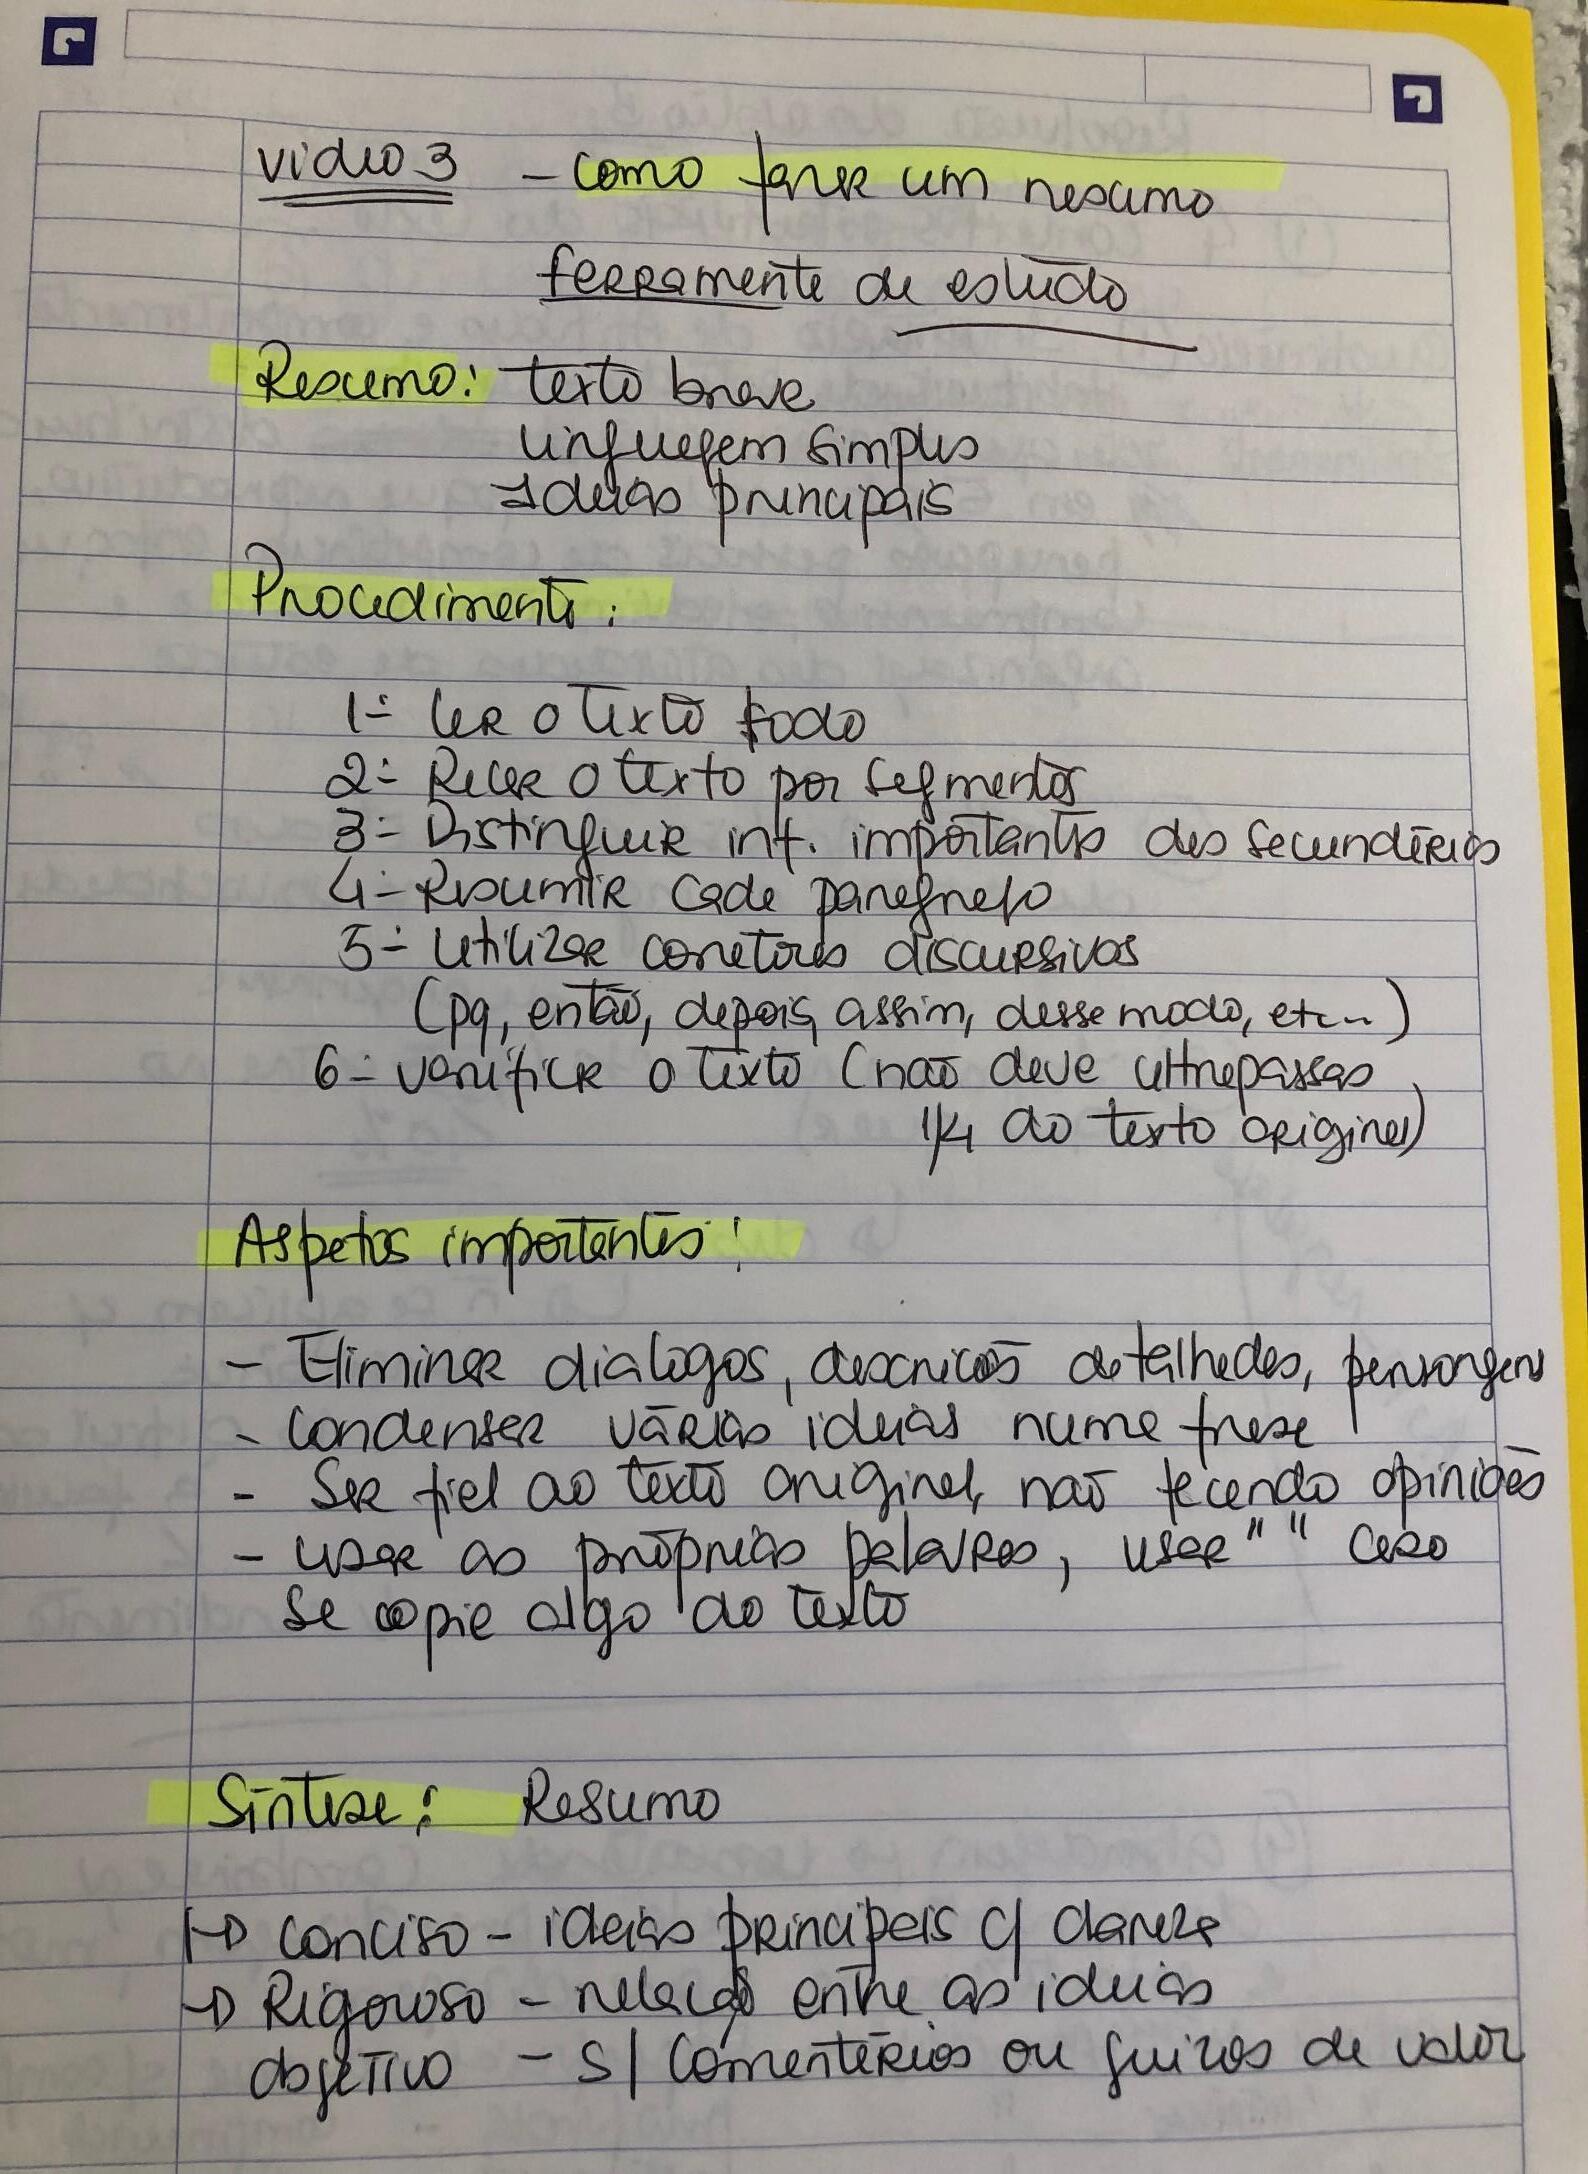 video 3 - como fazer um resumo
ferramenta de estudo
Resumo: texto breve
linguagem simples
Ideias principais
Procedimento:
1- Ler o texto todo
2- Reler o texto por segmentos
3- Distinguir inf. importantes das secundárias
4- Resumir cada parágrafo
5- Utilizar conetores discursivos
(pq, então, depois, assim, desse modo, etc...)
6- verificar o texto (não deve ultrapassar
1/4 do texto original)
Aspetos importantes:
- Eliminar dialogos, descrições detalhadas, personagens
- Condensar várias ideias numa frase
- Ser fiel ao texto original, não tecendo opiniões
- usar as próprias palavras, usar " " caso
se copie algo do texto
Síntese: Resumo
→ conciso - ideias principais c/ clareza
→ Rigoroso - relação entre as ideias
objetivo - s/ comentários ou juizos de valor